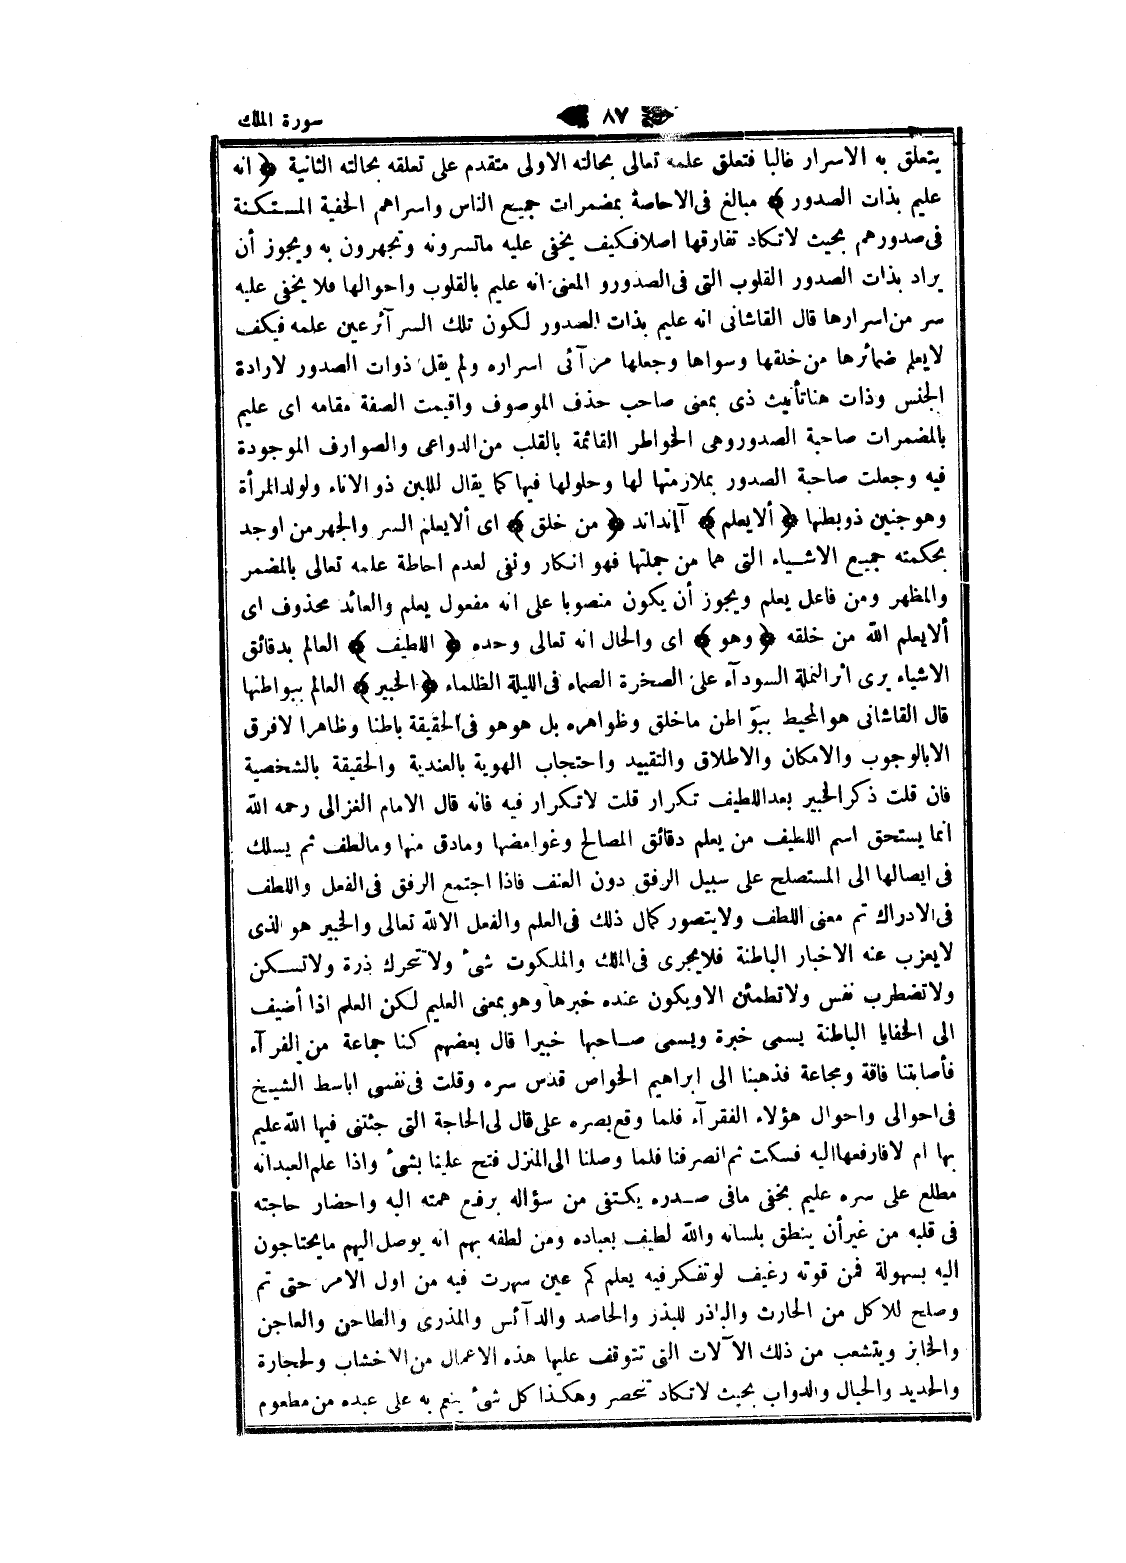 سورة الملك
٨٧
يتعلق به الاسرار غالبا فتعلق علمه تعالى بحالته الاولى متقدم على تعلقه بحالته الثانية ﴿ انه
عليم بذات الصدور ﴾ مبالغ فى الاحاصة بمضمرات جميع الناس واسراهم الخفية المستكنة
فى صدورهم بحيث لاتكاد تفارقها اصلا فكيف يخفى عليه ماتسرونه وتجهرون به ويجوز أن
يراد بذات الصدور القلوب التى فى الصدورو المعنى انه عليم بالقلوب واحوالها فلا يخفى عليه
سر من اسرارها قال القاشانى انه عليم بذات الصدور لكون تلك السر آئر عين علمه فيكف
لايعلم ضمائرها من خلقها وسواها وجعلها مر آئى اسراره ولم يقل ذوات الصدور لارادة
الجنس وذات هنا تأنيث ذى بمعنى صاحب حذف الموصوف واقيمت الصفة مقامه اى عليم
بالمضمرات صاحبة الصدور وهى الخواطر القائمة بالقلب من الدواعى والصوارف الموجودة
فيه وجعلت صاحبة الصدور بملازمتها لها وحلولها فيها كما يقال للبن ذو الاناء ولولد المرأة
وهو جنين ذو بطنها ﴿ ألا يعلم ﴾ آيا نداند ﴿ من خلق ﴾ اى ألا يعلم السر والجهر من اوجد
بحكمته جميع الاشياء التى هما من جملتها فهو انكار ونفى لعدم احاطة علمه تعالى بالمضمر
والمظهر ومن فاعل يعلم ويجوز أن يكون منصوبا على انه مفعول يعلم والعائد محذوف اى
ألا يعلم الله من خلقه ﴿ وهو ﴾ اى والحال انه تعالى وحده ﴿ اللطيف ﴾ العالم بدقائق
الاشياء يرى اثر النملة السودآء على الصخرة الصماء فى الليلة الظلماء ﴿ الخبير ﴾ العالم ببواطنها
قال القاشانى هو المحيط ببوّ اطن ماخلق وظواهره بل هو هو فى الحقيقة باطنا وظاهرا لافرق
الا بالوجوب والامكان والاطلاق والتقييد واحتجاب الهوية بالعندية والحقيقة بالشخصية
فان قلت ذكر الخبير بعد اللطيف تكرار قلت لاتكرار فيه فانه قال الامام الغزالى رحمه الله
انما يستحق اسم اللطيف من يعلم دقائق المصالح وغوامضها ومادق منها ومالطف ثم يسلك
فى ايصالها الى المستصلح على سبيل الرفق دون العنف فاذا اجتمع الرفق فى الفعل واللطف
فى الادراك تم معنى اللطف ولايتصور كمال ذلك فى العلم والفعل الا لله تعالى والخبير هو الذى
لايعزب عنه الاخبار الباطنة فلايجرى فى الملك والملكوت شئ ولاتتحرك ذرة ولاتسكن
ولاتضطرب نفس ولاتطمئن الا ويكون عنده خبرها وهو بمعنى العليم لكن العلم اذا أضيف
الى الخفايا الباطنة يسمى خبرة ويسمى صاحبها خبيرا قال بعضهم كنا جماعة من الفرآء
فأصابتنا فاقة ومجاعة فذهبنا الى ابراهيم الخواص قدس سره وقلت فى نفسى اباسط الشيخ
فى احوالى واحوال هؤلاء الفقرآء فلما وقع بصره على قال لى الحاجة التى جئتنى فيها الله عليم
بها ام لا فارفعها اليه فسكت ثم انصرفنا فلما وصلنا الى المنزل فتح علينا بشئ واذا علم العبد انه
مطلع على سره عليم بخفى مافى صدره يكتفى من سؤاله برفع همته اليه واحضار حاجته
فى قلبه من غير أن ينطق بلسانه والله لطيف بعباده ومن لطفه بهم انه يوصل اليهم مايحتاجون
اليه بسهولة فمن قوته رغيف لو تفكر فيه يعلم كم عين سهرت فيه من اول الامر حتى تم
وصلح للاكل من الحارث والباذر للبذر والحاصد والدآئس والمذرى والطاحن والعاجن
والخابز ويتشعب من ذلك الآلات التى تتوقف عليها هذه الاعمال من الاخشاب ولحجارة
والحديد والحبال والدواب بحيث لاتكاد تنحصر وهكذا كل شئ ينعم به على عبده من مطعوم